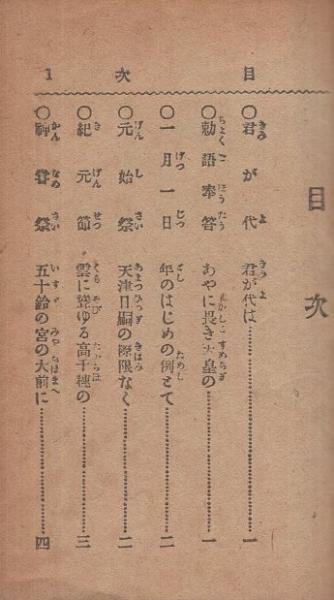 目次
1
目次
〇君が代 君が代は……………一
〇勅語奉答 あやに畏き天皇の……………一
〇一月一日 年のはじめの例とて……………二
〇元始祭 天津日嗣の際限なく……………二
〇紀元節 雲に聳ゆる高千穂の……………三
〇神嘗祭 五十鈴の宮の大前に……………四